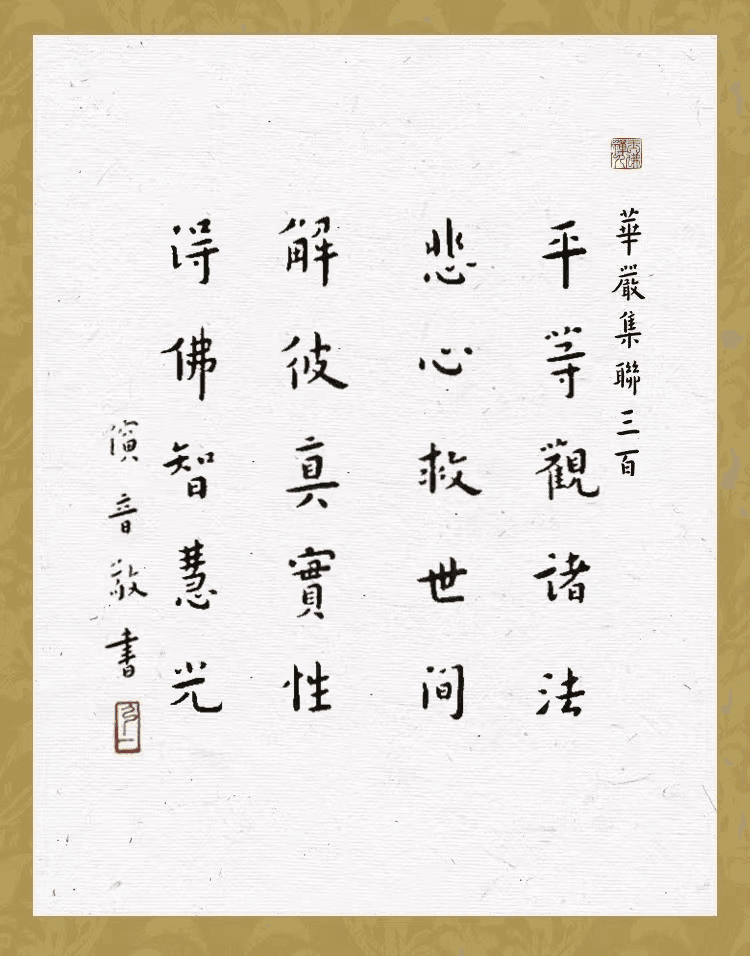 華嚴集聯三百
平等觀諸法
悲心救世間
解彼真實性
得佛智慧光
演音敬書